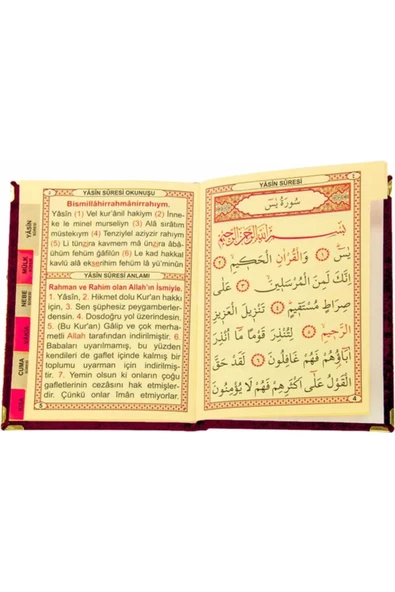 YÂSÎN SÛRESİ OKUNUŞU
Bismillâhirrahmânirrahıym.
Yâsîn (1) Vel kur'ânil hakiym (2) İnne-
ke le minel murseliyn (3) Alâ sırâtım
müstekıym (4) Tenziylel aziyzir rahıym
(5) Li tünzira kavmem mâ ünzira âbâ-
ühüm fehüm ğâfilûn (6) Le kad hakkal
kavlü alâ ekserihim fehüm lâ yü'minûn
YÂSÎN SÛRESİ ANLAMI
Rahman ve Rahim olan Allah'ın İsmiyle.
1. Yâsîn, 2. Hikmet dolu Kur'an hakkı
için, 3. Sen şüphesiz peygamberler-
densin. 4. Dosdoğru yol üzerindesin.
5. (Bu Kur'an) Gâlip ve çok merha-
metli Allah tarafından indirilmiştir. 6.
Babaları uyarılmamış, bu yüzden
kendileri de gaflet içinde kalmış bir
toplumu uyarman için indirilmiş-
tir. 7. Yemin olsun ki onların çoğu
gafletlerinin cezâsını hak etmişler-
dir. Çünkü onlar îmân etmiyorlar.
5
YÂSÎN
MÜLK
NEBE
CUMA
YÂSÎN SÛRESİ
سُورَةُ يٰسٓ
بِسْمِ اللّٰهِ الرَّحْمٰنِ الرَّحِيمِ
يٰسٓ ١ وَالْقُرْاٰنِ الْحَكِيمِ ٢
اِنَّكَ لَمِنَ الْمُرْسَلِينَ ٣ عَلٰى
صِرَاطٍ مُسْتَقِيمٍ ٤ تَنْزِيلَ الْعَزِيزِ
الرَّحِيمِ ٥ لِتُنْذِرَ قَوْمًا مَٓا اُنْذِرَ
اٰبَٓاؤُهُمْ فَهُمْ غَافِلُونَ ٦ لَقَدْ حَقَّ
الْقَوْلُ عَلٰٓى اَكْثَرِهِمْ فَهُمْ لَا يُؤْمِنُونَ
4